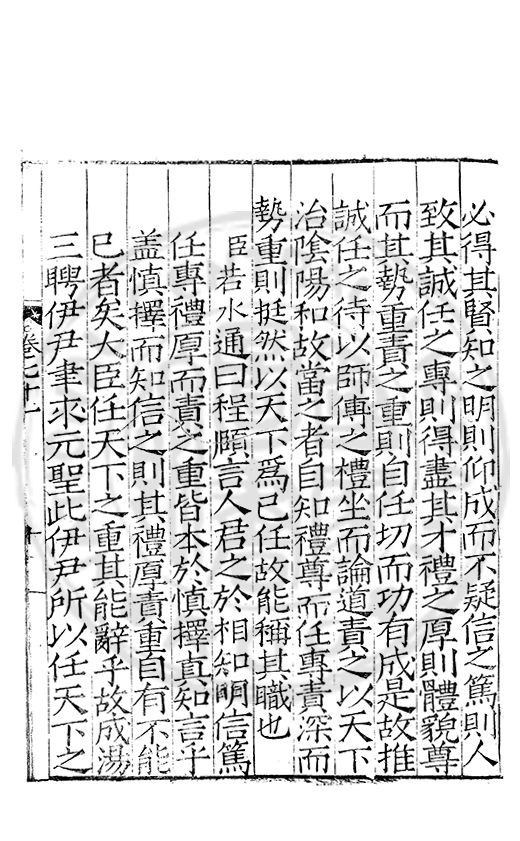 必得其賢知之明則仰成而不疑信之篤則人
致其誠任之專則得盡其才禮之厚則體貌尊
而其勢重責之重則自任切而功有成是故推
誠任之待以師傅之禮坐而論道責之以天下
治陰陽和故當之者自知禮尊而任專責深而
勢重則挺然以天下爲已任故能稱其職也
臣若水通曰程頤言人君之於相知明信篤
任專禮厚而責之重皆本於慎擇真知言乎
盖慎擇而知信之則其禮厚責重自有不能
已者矣大臣任天下之重其能辭乎故成湯
三聘伊尹聿求元聖此伊尹所以任天下之
卷七十一